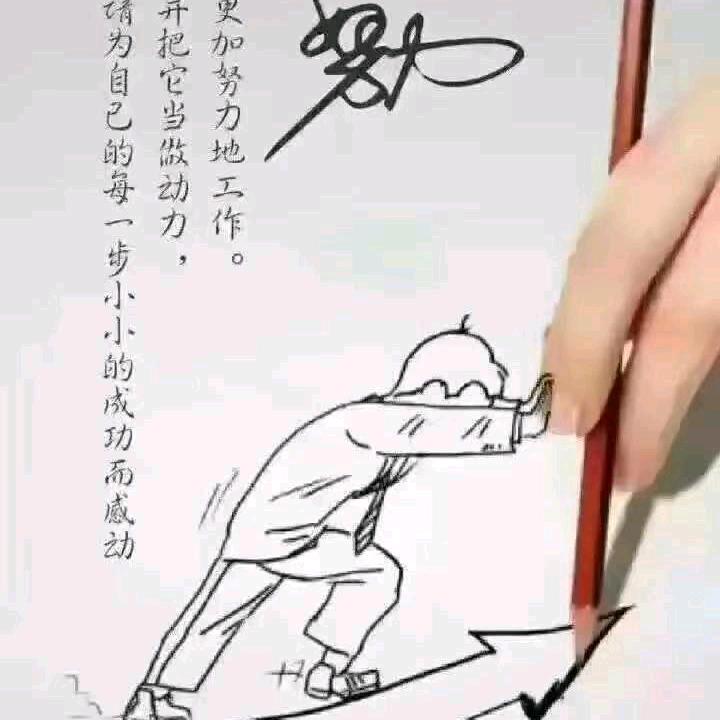 请为自己的每一步小小的成功而感动
并把它当做动力，
更加努力地工作。
努力